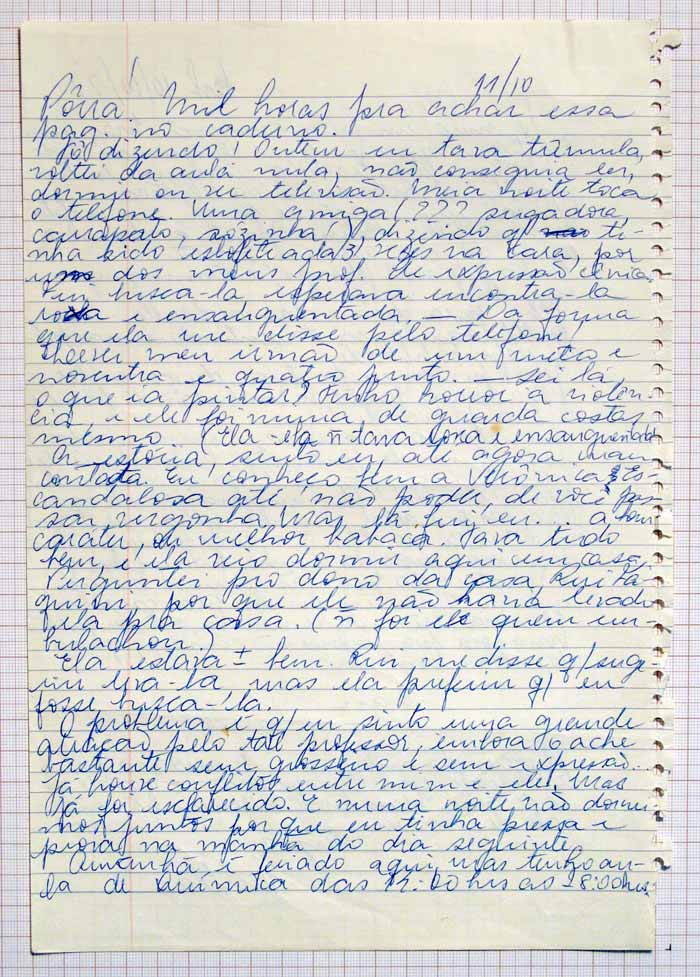 11/10
Pôrra! Mil horas pra achar essa
pag. no caderno.
Tô dizendo! Ontem eu tava trêmula,
voltei da aula nula, não conseguia ler,
dormir ou ver televisão. Meia noite toca
o telefone. Uma amiga (??? sugadora,
carrapato, sózinha!), dizendo q/ ti-
nha sido esbofeteada 3 vezes na cara, por
um dos meus prof. de expressão cênica.
Fui busca-la esperava encontra-la
roxa e ensanguentada. — Da forma
que ela me disse pelo telefone
meu irmão de um metro e
noventa e quatro junto. — Sei lá
o que ia pintar! Tenho horror a violên-
cia e ele foi numa de guarda costas
mesmo. (Ela ñ tava roxa e ensanguentada
A estória, sinto eu até agora mau
contada. Eu conheço bem a Verônica. Es-
candalosa até não poder, de você pas-
sar vergonha. Mas lá fui eu... a bom
carater, ou melhor babaca. Tava tudo
bem, e ela veio dormir aqui em casa.
Perguntei pro dono da casa Rui Ta-
quini, por que ele não havia levado
ela pra casa. (ñ foi ele quem em-
bulachou.)
Ela estava ± bem. Rui me disse q/ suge-
riu leva-la mas ela preferiu q/ eu
fosse busca-la.
O problema é q/ eu sinto uma grande
atração pelo tal professor, embora o ache
bastante sem grosseiro e sem expressão...
Já houve conflitos entre mim e ele. Mas
já foi esclarecido. E numa noite não dormi-
mos juntos por que eu tinha pressa e
prova na manhã do dia seguinte.
Amanhã é feriado aqui, mas tenho au-
la de química das as 18:00 hrs.